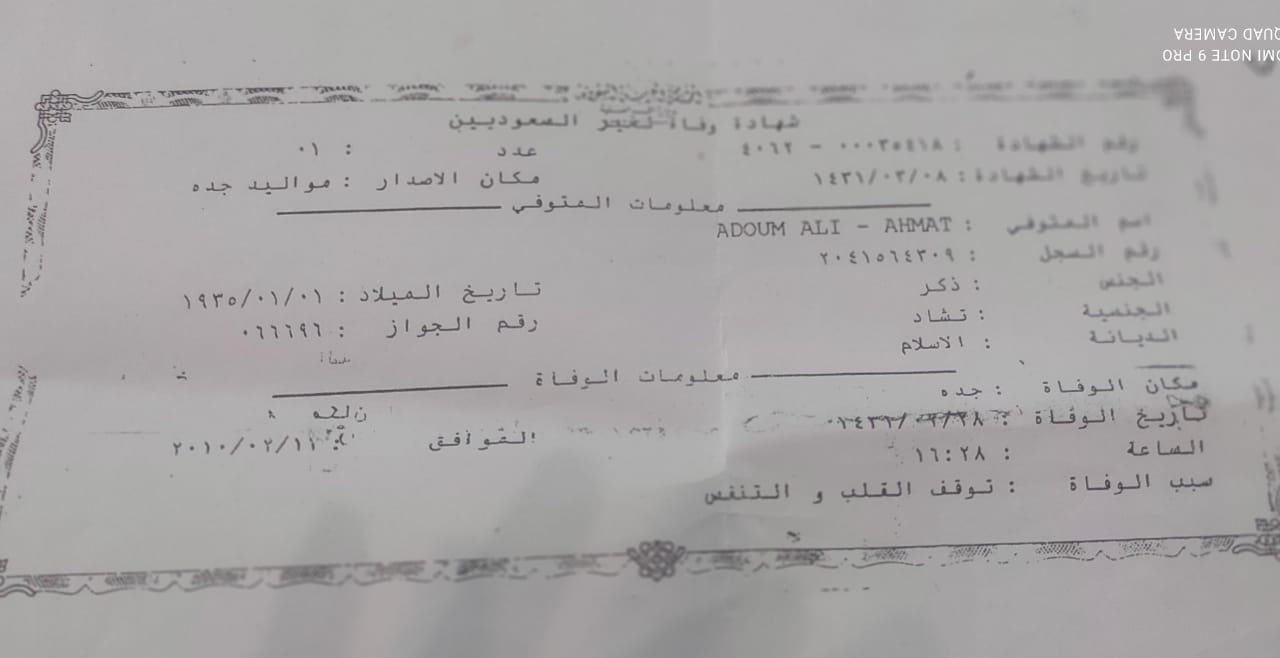 شهادة وفاة لغير السعوديين
رقم الشهادة : ٠٠٠٣٥٤١٨ - ٤٠٦٢ عدد : ٠١
تاريخ الشهادة : ١٤٣١/٠٣/٠٨ مكان الاصدار : مواليد جده
معلومات المتوفي
اسم المتوفي : ADOUM ALI - AHMAT
رقم السجل : ٢٠٤١٥٦٤٣٠٩
الجنس : ذكر تاريخ الميلاد : ١٩٣٥/٠١/٠١
الجنسية : تشاد رقم الجواز : ٠٦٦٦٩٦
الديانة : الاسلام
معلومات الوفاة
مكان الوفاة : جده
تاريخ الوفاة : الموافق ٢٠١٠/٠٢/١١
الساعة : ١٦:٢٨
سبب الوفاة : توقف القلب و التنفس